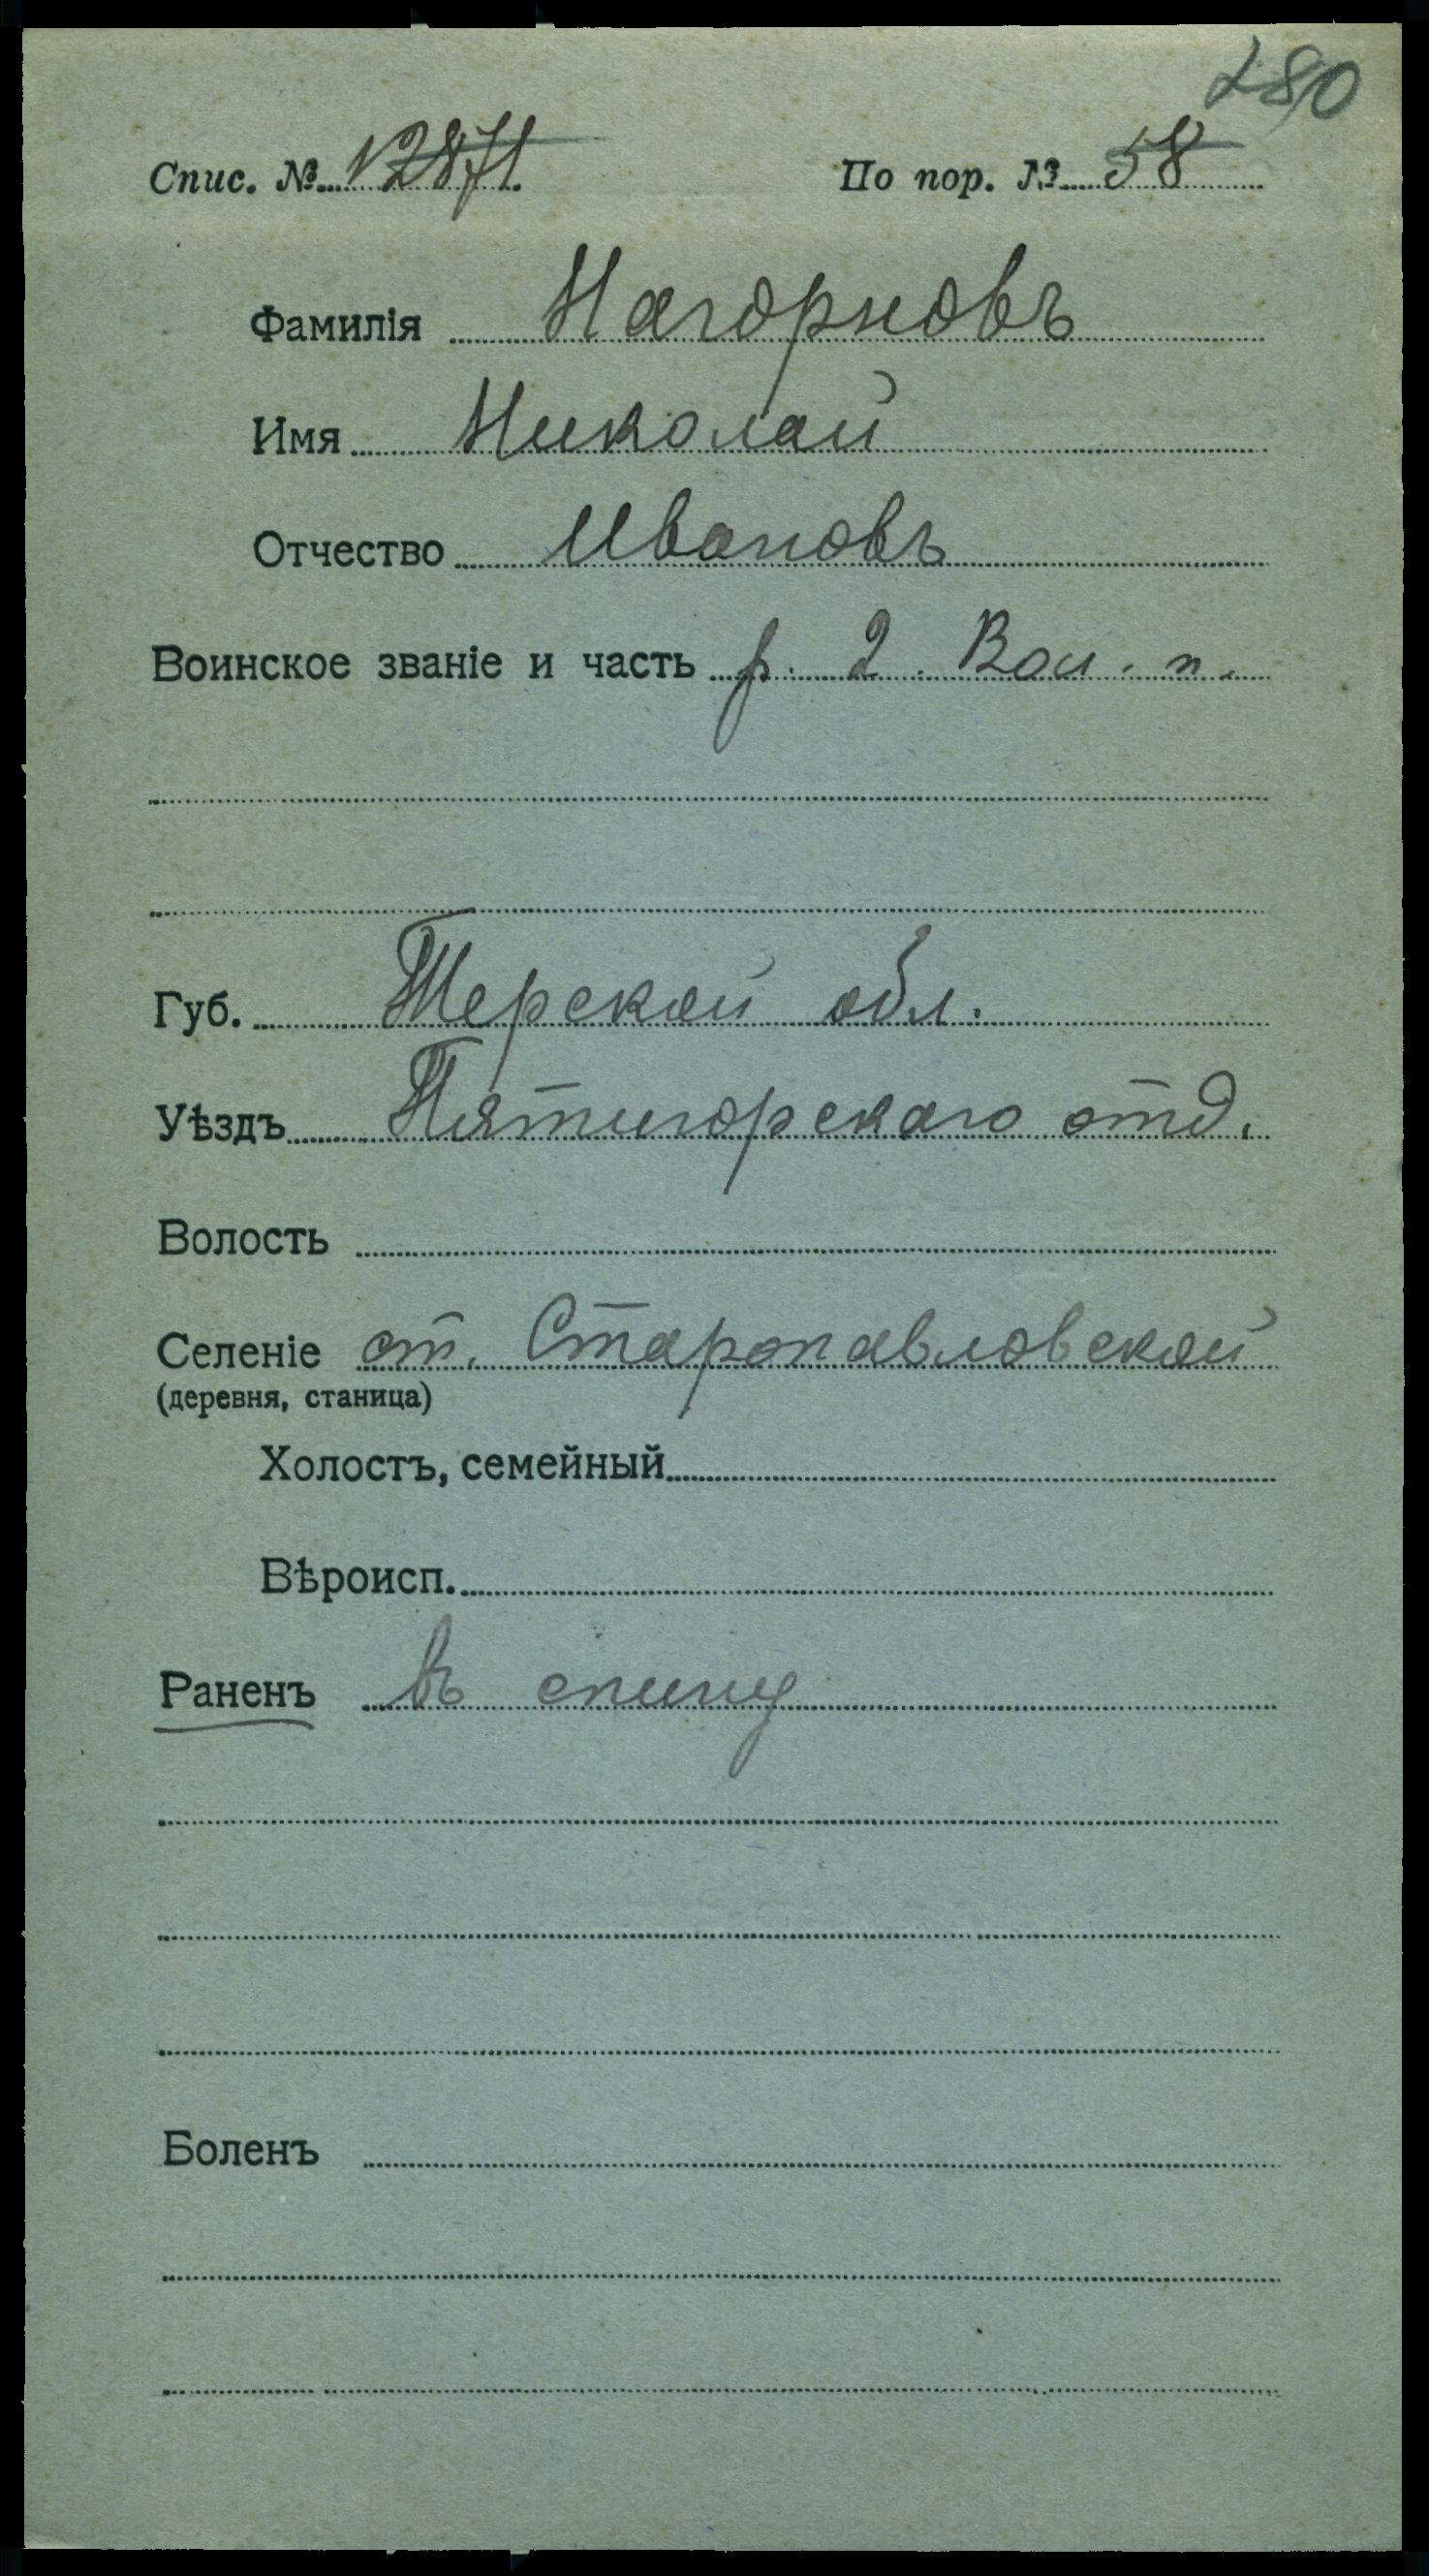 280
Спис. № 12871. По пор. № 58
Фамилія Нагорновъ
Имя Николай
Отчество Ивановъ
Воинское званіе и часть р. 2. Вол. п.
Губ. Терской обл.
Уѣздъ Пятигорскаго отд.
Волость
Селеніе ст. Старопавловской
(деревня, станица)
Холостъ, семейный
Вѣроисп.
Раненъ въ спину
Боленъ